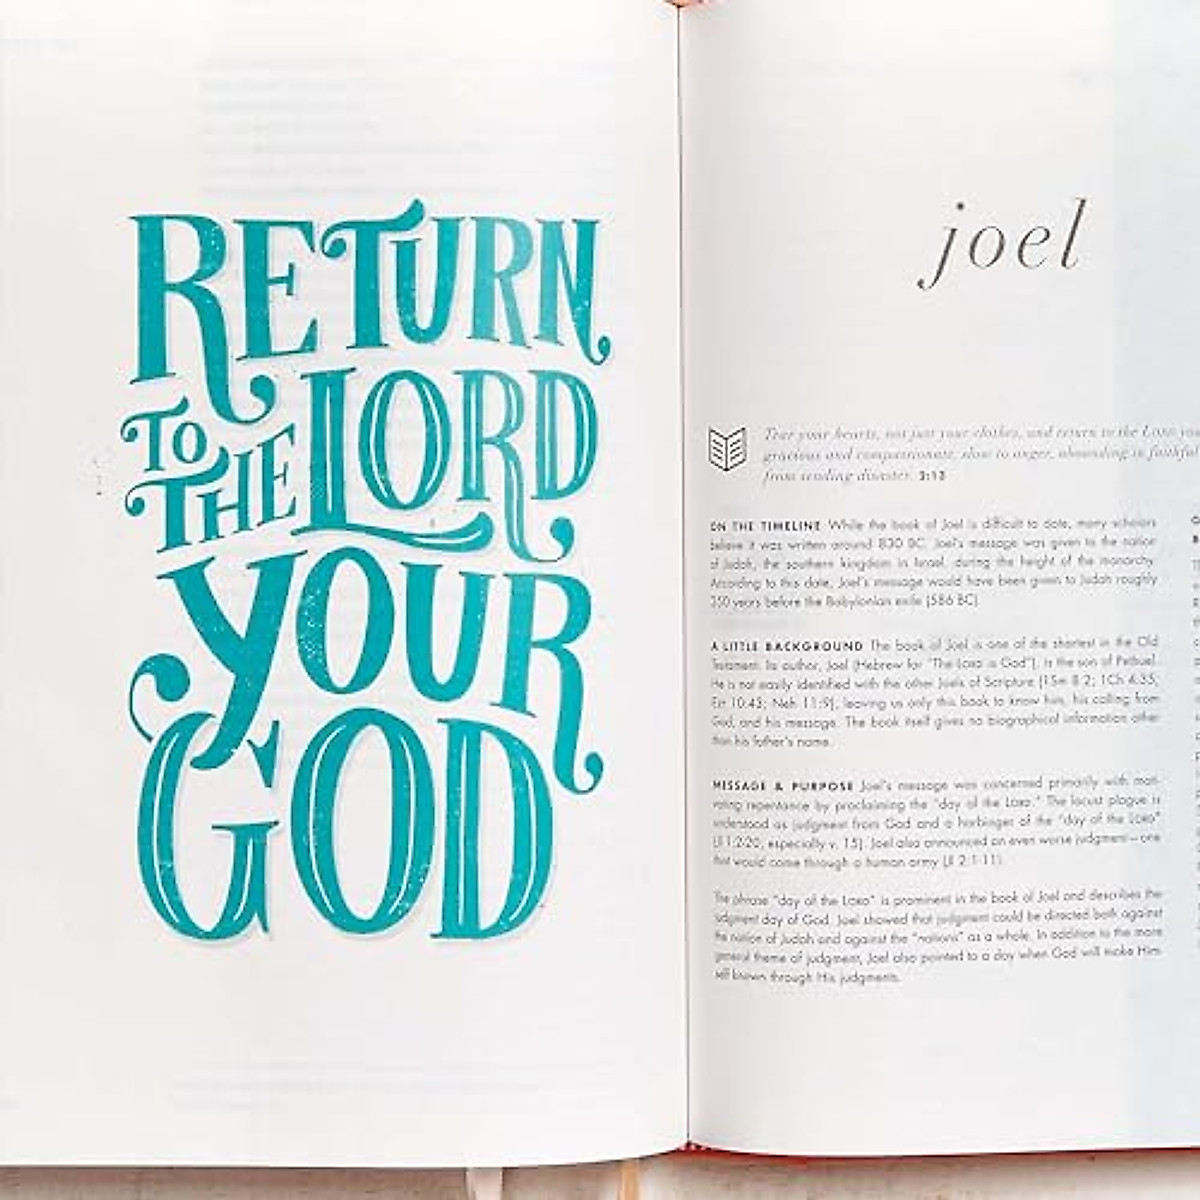 RETURN
TO
THE LORD
YOUR
GOD
joel
Tear your hearts, not just your clothes, and return to the LORD
gracious and compassionate, slow to anger, abounding in faithful
from sending disaster. 2:13
ON THE TIMELINE While the book of Joel is difficult to date, many scholars
believe it was written around 830 BC. Joel's message was given to the nation
of Judah, the southern kingdom in Israel, during the height of the monarchy.
According to this date, Joel's message would have been given to Judah roughly
250 years before the Babylonian exile (586 BC).
A LITTLE BACKGROUND The book of Joel is one of the shortest in the Old
Testament. Its author, Joel (Hebrew for "The LORD is God"), is the son of Pethuel.
He is not easily identified with the other Joels of Scripture (1Sm 8:2; 1Ch 4:35;
Ezr 10:43; Neh 11:9), leaving us only this book to know him, his calling from
God, and his message. The book itself gives no biographical information other
than his father's name.
MESSAGE & PURPOSE Joel's message was concerned primarily with moti-
vating repentance by proclaiming the "day of the LORD." The locust plague is
understood as judgment from God and a harbinger of the "day of the LORD"
(Jl 1:2-20, especially v. 15). Joel also announced an even worse judgment—one
that would come through a human army (Jl 2:1-11).
The phrase "day of the LORD" is prominent in the book of Joel and describes the
judgment day of God. Joel showed that judgment could be directed both against
the nation of Judah and against the "nations" as a whole. In addition to the more
general theme of judgment, Joel also pointed to a day when God will make Him-
self known through His judgments.